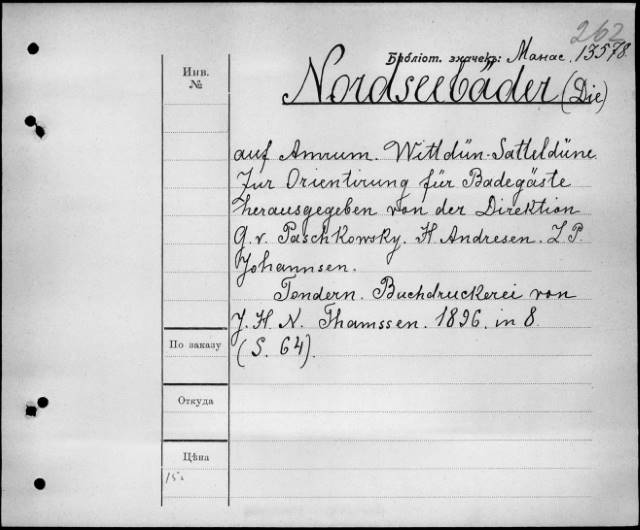 262
Библіот. значекъ: Манас. 13578.
Инв.
№
Nordseebäder (Die)
auf Amrum. Wittdün-Satteldüne.
Zur Orientirung für Badegäste
herausgegeben von der Direktion
G. v. Paschkowsky. H Andresen. L P.
Johannsen.
Tondern. Buchdruckerei von
J. H. N. Thamssen. 1896. in 8.
По заказу
(S. 64).
Откуда
Цѣна